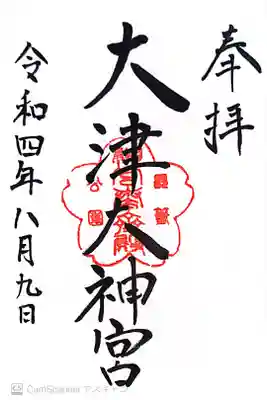 奉拝
大津大神宮
令和四年八月九日
CamScanner